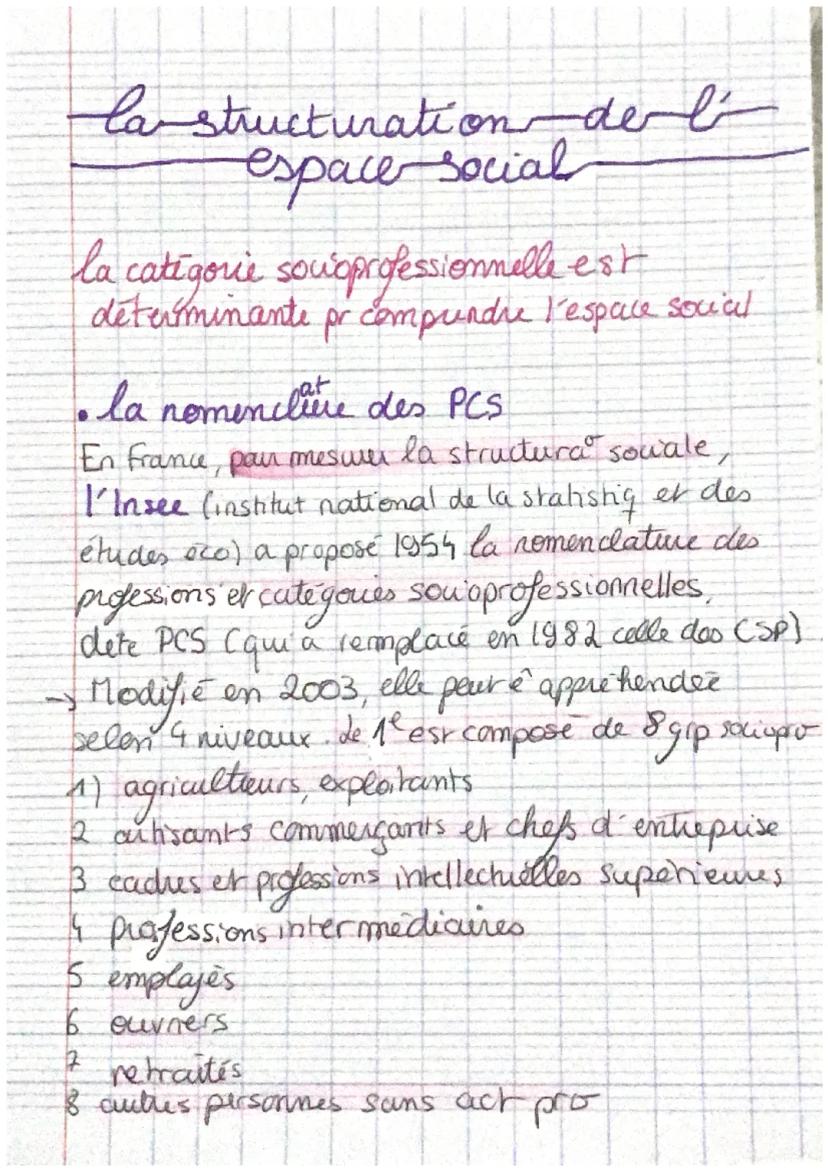 la structuration de l'
espace social
la catégorie socioprofessionnelle est
déterminante pr comprendre l'espace social
• la nomenclature des PCS
En France, pour mesurer la structura° sociale,
l'Insee (institut national de la statistiq et des
études éco) a proposé 1954 la nomenclature des
professions et catégories socioprofessionnelles,
dete PCS (qui a remplacé en 1982 celle des CSP)
→ Modifié en 2003, elle peur ê appréhendée
selon 4 niveaux. Le 1e est composé de 8 grp sociopro
1) agriculteurs, exploitants
2 artisants commerçants et chefs d'entreprise
3 cadres et professions intellectuelles supérieures
4 professions intermédiaires
5 employés
6 ouvriers
7 retraités
8 autres personnes sans act pro